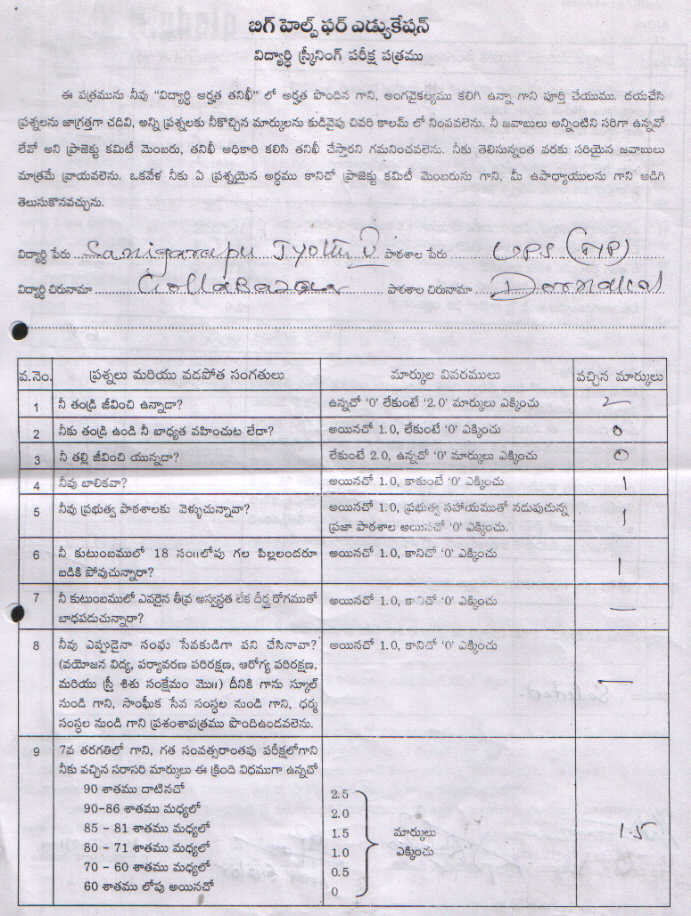 బిగ్ హెల్ప్ ఫర్ ఎడ్యుకేషన్
విద్యార్థి స్క్రీనింగ్ పరీక్ష పత్రము
ఈ పత్రమును నీవు "విద్యార్థి అర్హత తనిఖీ" లో అర్హత పొందిన గాని, అంగవైకల్యము కలిగి ఉన్నా గాని పూర్తి చేయుము. దయచేసి
ప్రశ్నలను జాగ్రత్తగా చదివి, అన్ని ప్రశ్నలకు నీకొచ్చిన మార్కులను కుడివైపు చివరి కాలమ్ లో నింపవలెను. నీ జవాబులు అన్నింటిని సరిగా ఉన్నవో
లేవో అని ప్రాజెక్టు కమిటీ మెంబరు, తనిఖీ అధికారి కలిసి తనిఖీ చేస్తారని గమనించవలెను. నీకు తెలిసున్నంత వరకు సరియైన జవాబులు
మాత్రమే వ్రాయవలెను. ఒకవేళ నీకు ఏ ప్రశ్నయైన అర్థము కానిచో ప్రాజెక్టు కమిటీ మెంబరును గాని, మీ ఉపాధ్యాయులను గాని అడిగి
తెలుసుకొనవచ్చును.
విద్యార్థి పేరు Sanigarapu Jyothi పాఠశాల పేరు UPS
విద్యార్థి చిరునామా Golla Bazaar పాఠశాల చిరునామా Dornakal
వ.నెం. ప్రశ్నలు మరియు వడపోత సంగతులు మార్కుల వివరములు వచ్చిన మార్కులు
1 నీ తండ్రి జీవించి ఉన్నాడా? ఉన్నచో '0' లేకుంటే '2.0' మార్కులు ఎక్కించు 2
2 నీకు తండ్రి ఉండి నీ బాధ్యత వహించుట లేదా? అయినచో 1.0, లేకుంటే '0' ఎక్కించు 0
3 నీ తల్లి జీవించి యున్నదా? లేకుంటే 2.0, ఉన్నచో '0' మార్కులు ఎక్కించు 0
4 నీవు బాలికవా? అయినచో 1.0, కాకుంటే '0' ఎక్కించు 1
5 నీవు ప్రభుత్వ పాఠశాలకు వెళ్ళుచున్నావా? అయినచో 1.0, ప్రభుత్వ సహాయముతో నడుపుచున్న 1
ప్రజా పాఠశాల అయినచో '0' ఎక్కించు.
6 నీ కుటుంబములో 18 సం॥లోపు గల పిల్లలందరూ అయినచో 1.0, కానిచో '0' ఎక్కించు 1
బడికి పోవుచున్నారా?
7 నీ కుటుంబములో ఎవరైన తీవ్ర అస్వస్థత లేక దీర్ఘ రోగముతో అయినచో 1.0, కానిచో '0' ఎక్కించు —
బాధపడుచున్నారా?
8 నీవు ఎప్పుడైనా సంఘ సేవకుడిగా పని చేసినావా? అయినచో 1.0, కానిచో '0' ఎక్కించు —
(వయోజన విద్య, పర్యావరణ పరిరక్షణ, ఆరోగ్య పరిరక్షణ,
మరియు స్త్రీ శిశు సంక్షేమం మొ॥) దీనికి గాను స్కూల్
నుండి గాని, సాంఘీక సేవ సంస్థల నుండి గాని, ధర్మ
సంస్థల నుండి గాని ప్రశంశాపత్రము పొందిఉండవలెను.
9 7వ తరగతిలో గాని, గత సంవత్సరాంతపు పరీక్షలోగాని
నీకు వచ్చిన సరాసరి మార్కులు ఈ క్రింది విధముగా ఉన్నచో
90 శాతము దాటినచో 2.5
90-86 శాతము మధ్యలో 2.0
85 - 81 శాతము మధ్యలో 1.5 మార్కులు 1.5
80 - 71 శాతము మధ్యలో 1.0 ఎక్కించు
70 - 60 శాతము మధ్యలో 0.5
60 శాతము లోపు అయినచో 0